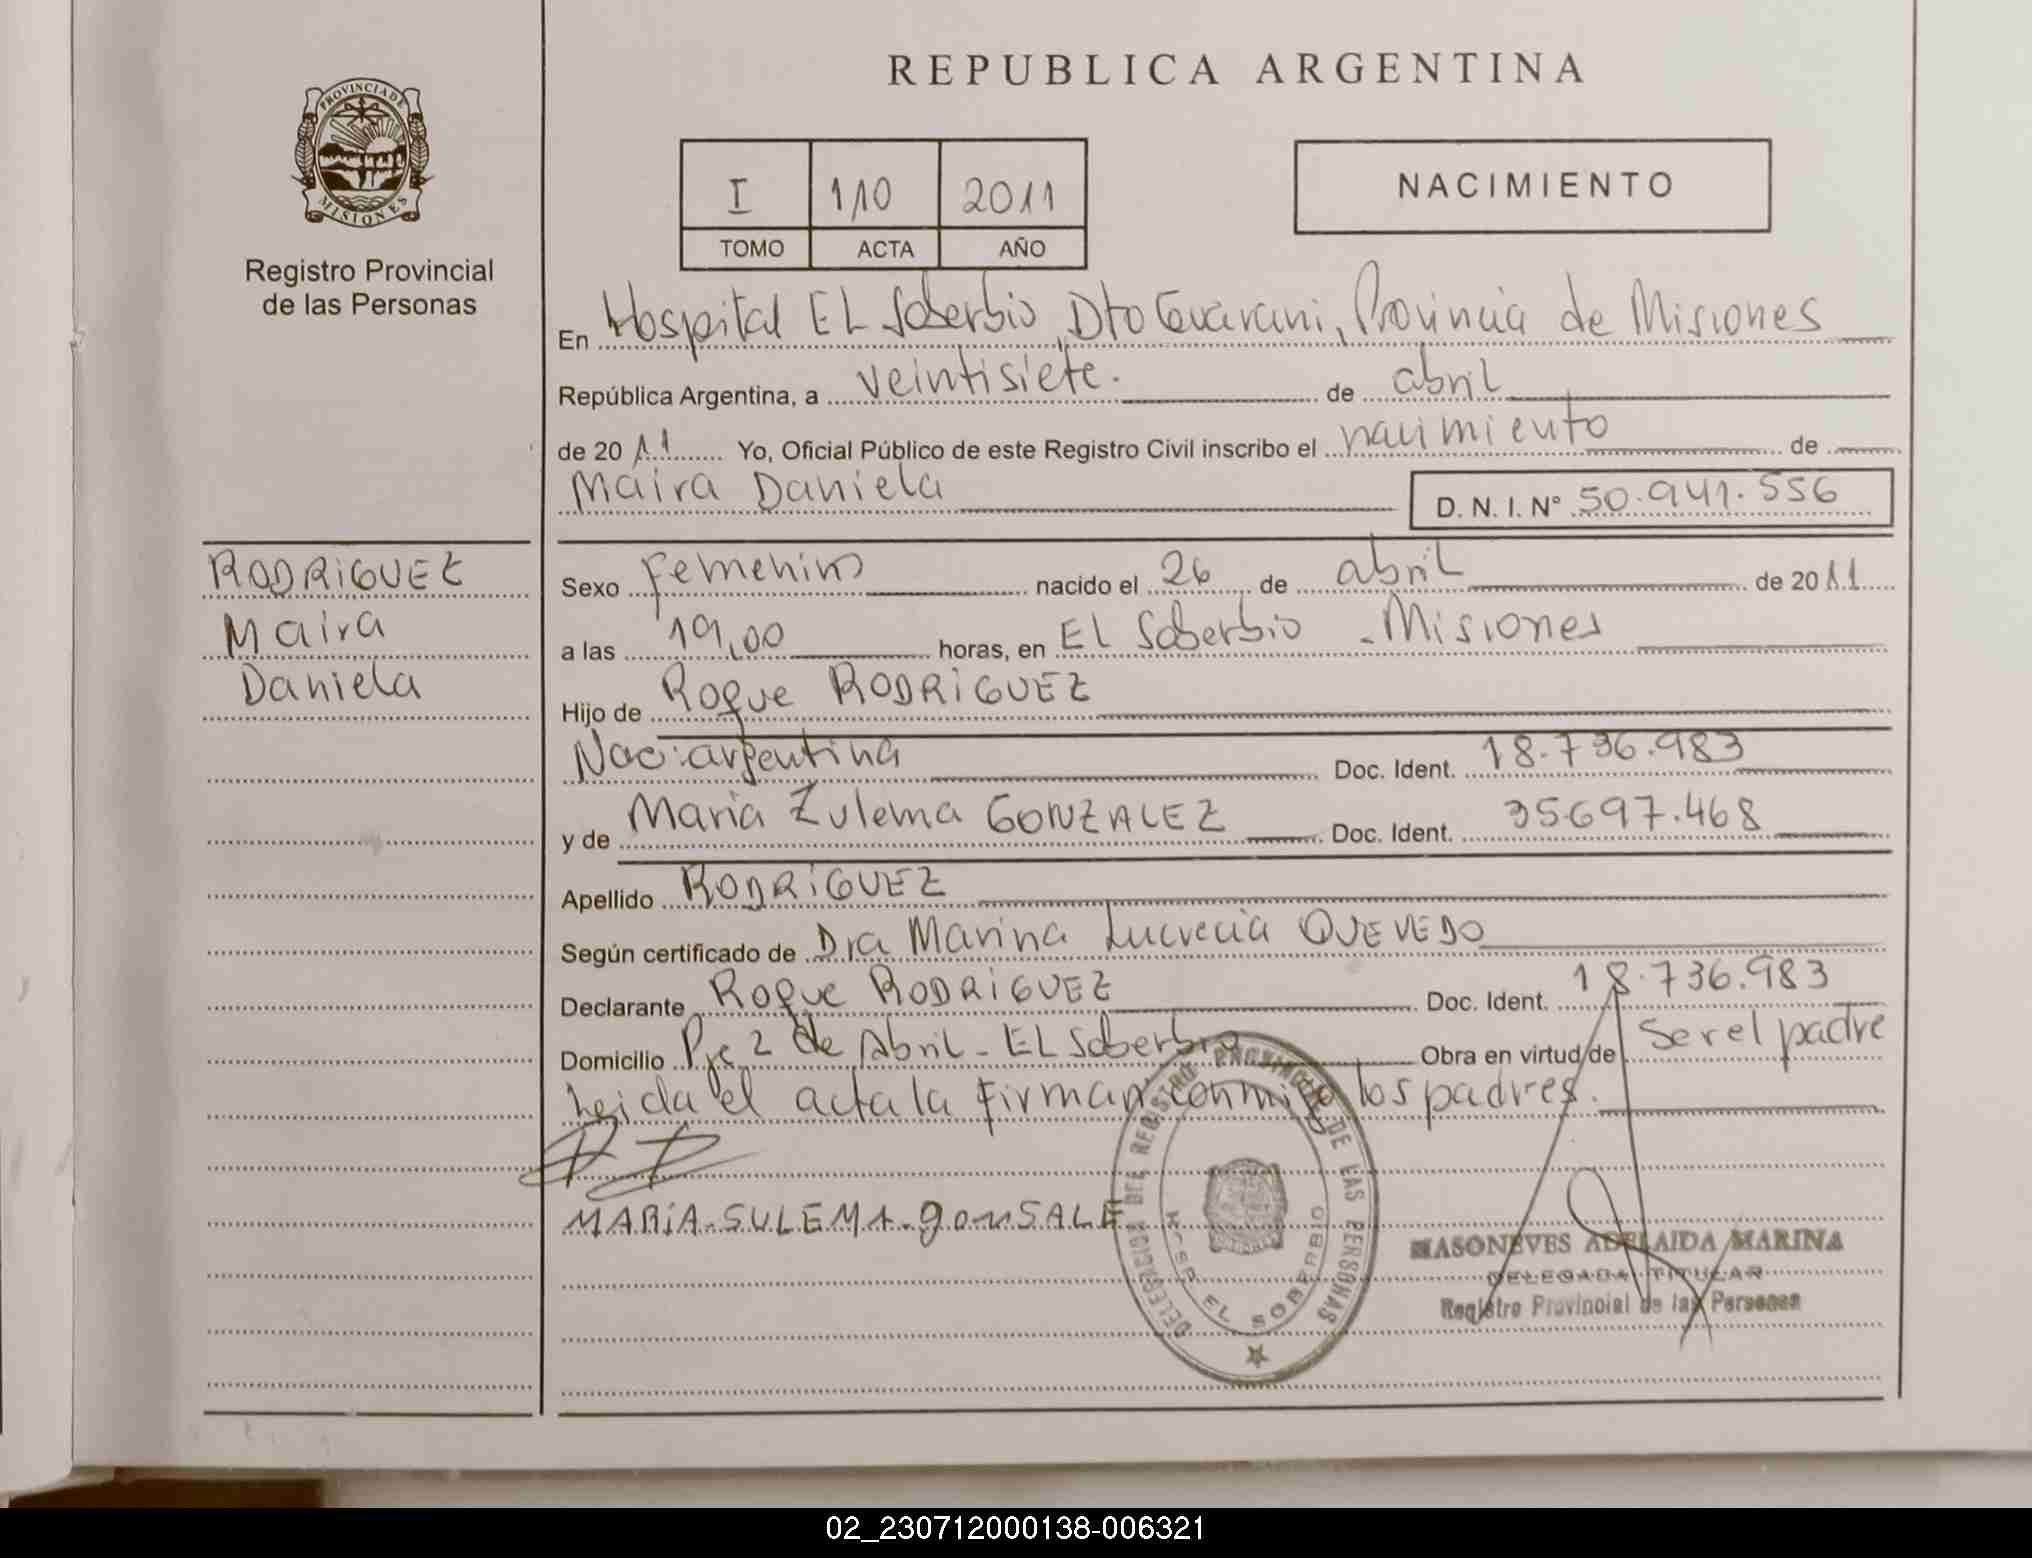 PROVINCIA DE
MISIONES
Registro Provincial
de las Personas
REPUBLICA ARGENTINA
I 110 2011
TOMO ACTA AÑO
NACIMIENTO
En Hospital EL Soberbio, Dto Guarani, Provincia de Misiones
República Argentina, a veintisiete. de abril
de 2011 Yo, Oficial Público de este Registro Civil inscribo el nacimiento de
Maira Daniela D. N. I. N° 50.941.556
RODRIGUEZ
Maira
Daniela
Sexo Femenino nacido el 26 de abril de 2011
a las 19,00 horas, en EL Soberbio - Misiones
Hijo de Roque RODRIGUEZ
Nac: argentina Doc. Ident. 18.736.983
y de Maria Zulema GONZALEZ Doc. Ident. 35697.468
Apellido RODRIGUEZ
Según certificado de Dra Marina Lucrecia QUEVEDO
Declarante Roque RODRIGUEZ Doc. Ident. 18.736.983
Domicilio Pje 2 de Abril - EL Soberbio Obra en virtud de ser el padre
Leida el acta la firman conmigo los padres.
MARIA SULEMA gonSALE
DELEGACION DEL REGISTRO PROVINCIAL DE LAS PERSONAS
HOSP. EL SOBERBIO
MASONEVES ADELAIDA MARINA
DELEGADA TITULAR
Registro Provincial de las Personas
02_230712000138-006321